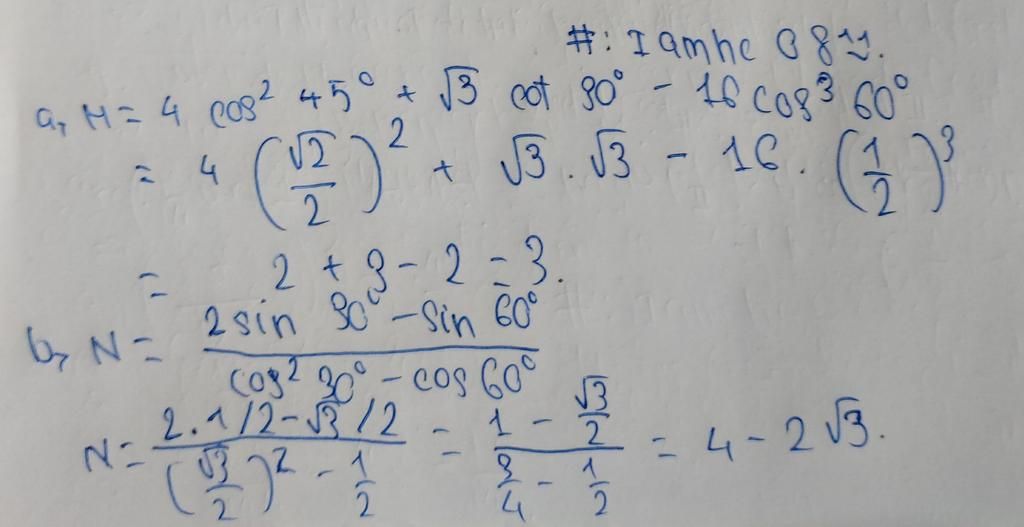 #: I amhc 08 ")
a, M = 4 cos² 45° + √3 cot 30° - 16 cos³ 60°
= 4 (√2/2)² + √3 . √3 - 16 . (1/2)³
= 2 + 3 - 2 = 3.
b, N = (2 sin 30° - sin 60°)/(cos² 30° - cos 60°)
N = (2.1/2 - √3/2)/((√3/2)² - 1/2) = (1 - √3/2)/(3/4 - 1/2) = 4 - 2√3.